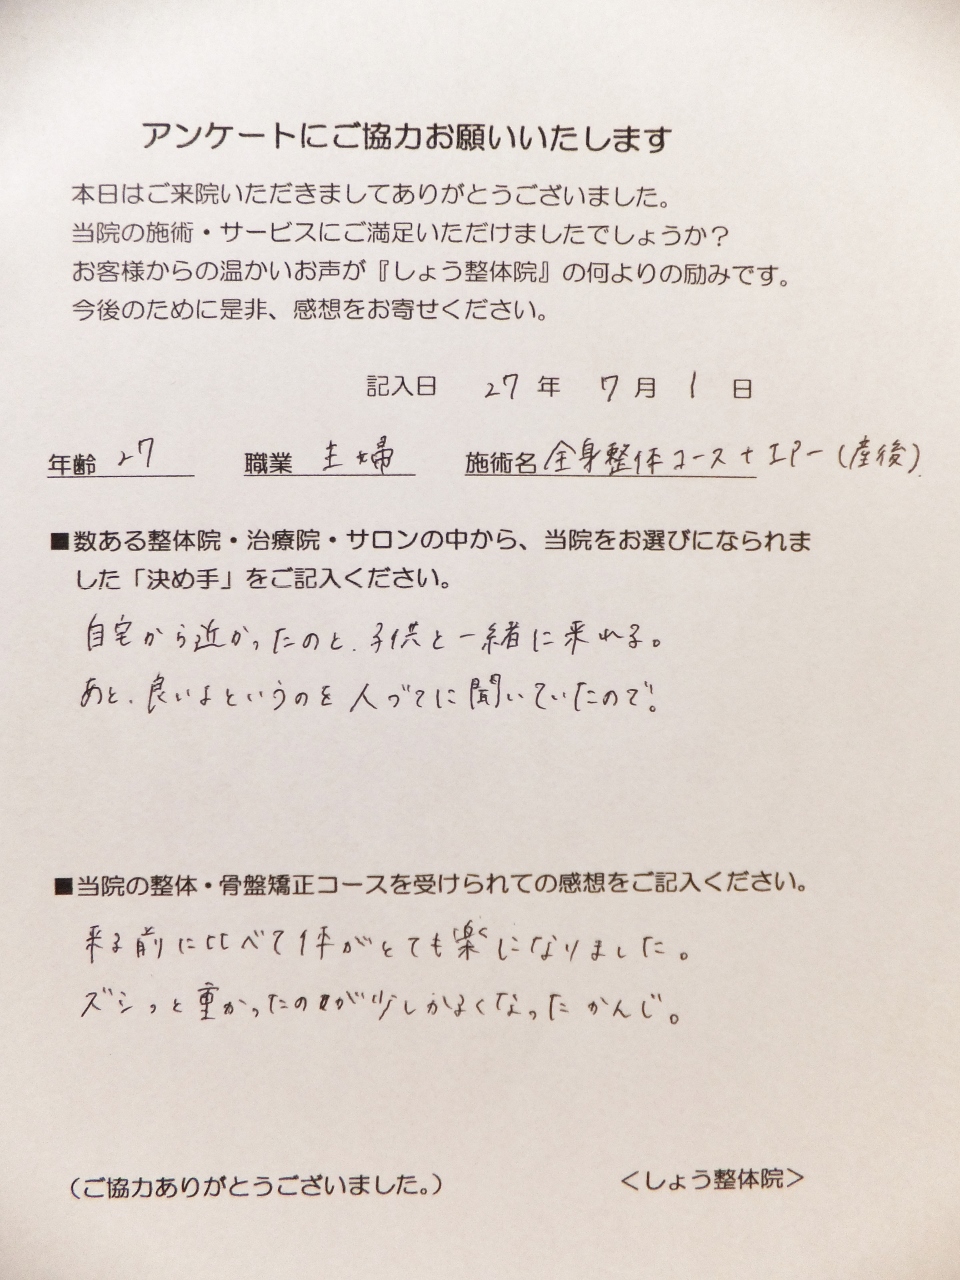 アンケートにご協力お願いいたします
本日はご来院いただきましてありがとうございました。
当院の施術・サービスにご満足いただけましたでしょうか？
お客様からの温かいお声が『しょう整体院』の何よりの励みです。
今後のために是非、感想をお寄せください。
記入日 27年 7月 1日
年齢 27 職業 主婦 施術名 全身整体コース+エアー(産後)
■数ある整体院・治療院・サロンの中から、当院をお選びになられま
した「決め手」をご記入ください。
自宅から近かったのと、子供と一緒に来れる。
あと、良いよというのを人づてに聞いていたので。
■当院の整体・骨盤矯正コースを受けられての感想をご記入ください。
来る前に比べて体がとても楽になりました。
ズシっと重かったのが少しかるくなったかんじ。
（ご協力ありがとうございました。）
＜しょう整体院＞